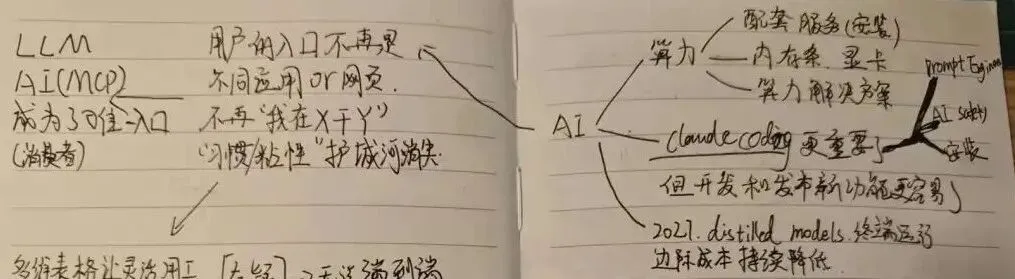 LLM
AI(MCP)
成为了唯一入口
(消费者)
用户的入口不再是
不同应用 or 网页.
不再"我在X干Y"
"习惯/粘性"护城河消失
多维表格让灵活用工
无法端到端
AI
算力
配套服务(安装)
内存条.显卡
算力解决方案
Claude coding 更重要了
Prompt Engineer
AI safety
安装
但开发和发布新功能更容易了
2027. distilled models. 终端运行
边际成本持续降低.